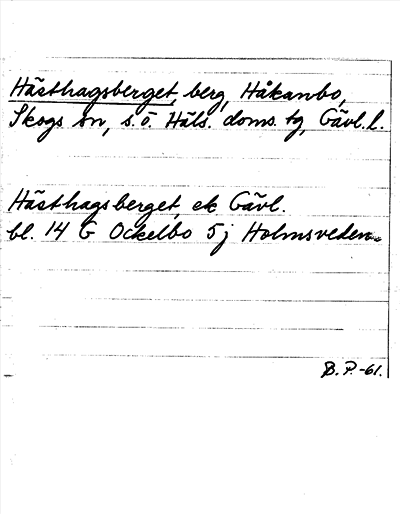 Hästhagsberget, berg, Håkanbo,
Skogs sn, s.ö. Häls. doms. tg, Gävl.l.
Hästhagsberget, ek Gävl.
bl. 14 G Ockelbo 5j Holmsveden
B.P.-61.